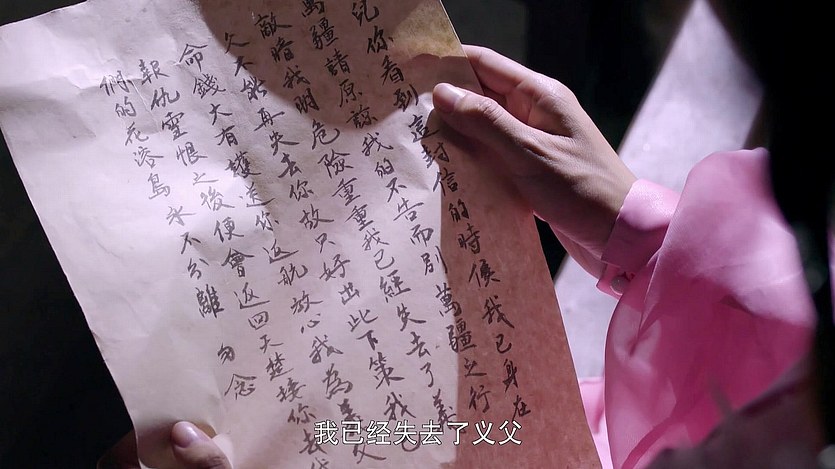 兒你看到這封信的時候我已身在
萬疆請原諒我的不告而別萬疆之行
敵暗我明危險重重我已經失去了義
父不能再失去你故只好出此下策我已
命錢大有護送你返航放心我為義父
報仇雪恨之後便會返回天楚接你去我
們的花溶島永不分離 勿念
我已经失去了义父